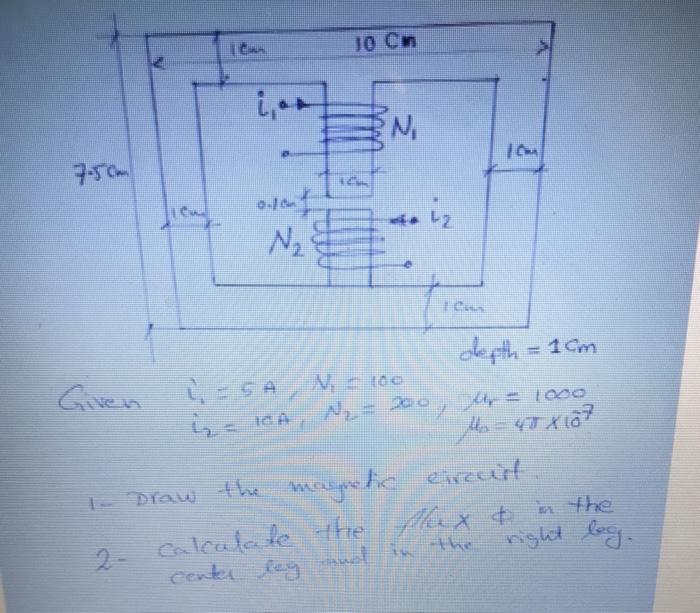 1cm 10 Cm
i₁ N₁
1cm
7.5cm
1cm
0.1cm
1cm i₂
N₂
1cm
depth = 1cm
Given i₁ = 5A, N₁ = 100
i₂ = 10A, N₂ = 200, μr = 1000
μ₀ = 4π×10⁻⁷
1- Draw the magnetic circuit.
2- calculate the flux φ in the
center leg and in the right leg.